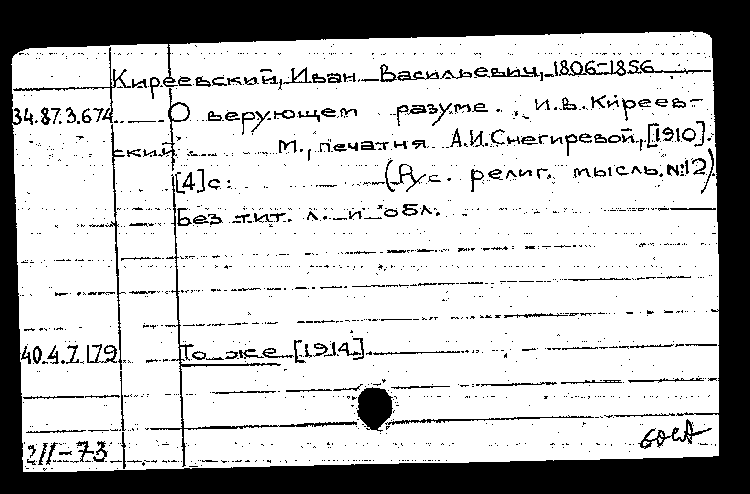 Киреевский, Иван Васильевич, 1806-1856
34.87.3.674 О верующем разуме. И.В.Киреев-
ский. М., печатня А.И.Снегиревой, [1910].
[4]с. (Рус. религ. мысль. №12)
Без тит. л. и обл.
40.4.7.179 То же [1914]
211-73